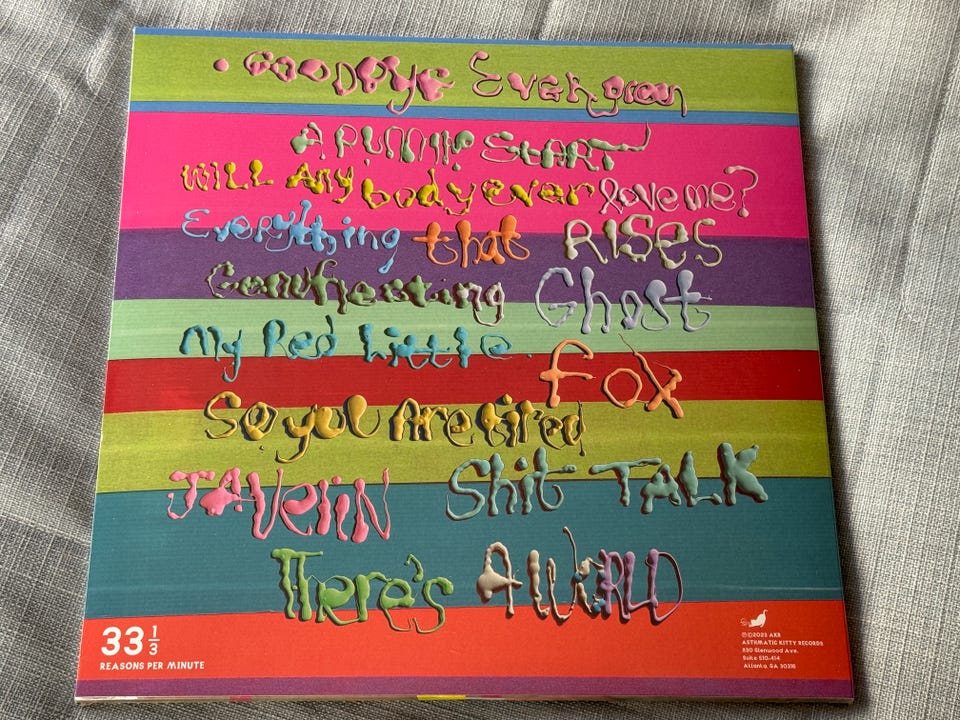 . Goodbye Evergreen
A Running Start
Will Anybody ever love me?
Everything that Rises
Genuflecting Ghost
My Red Little. Fox
So you Are tired
JAVeliN Shit TALK
There's A World
33 1/3
REASONS PER MINUTE
℗©2023 AKR
ASTHMATIC KITTY RECORDS
830 Glenwood Ave.
Suite 510-414
Atlanta, GA 30316